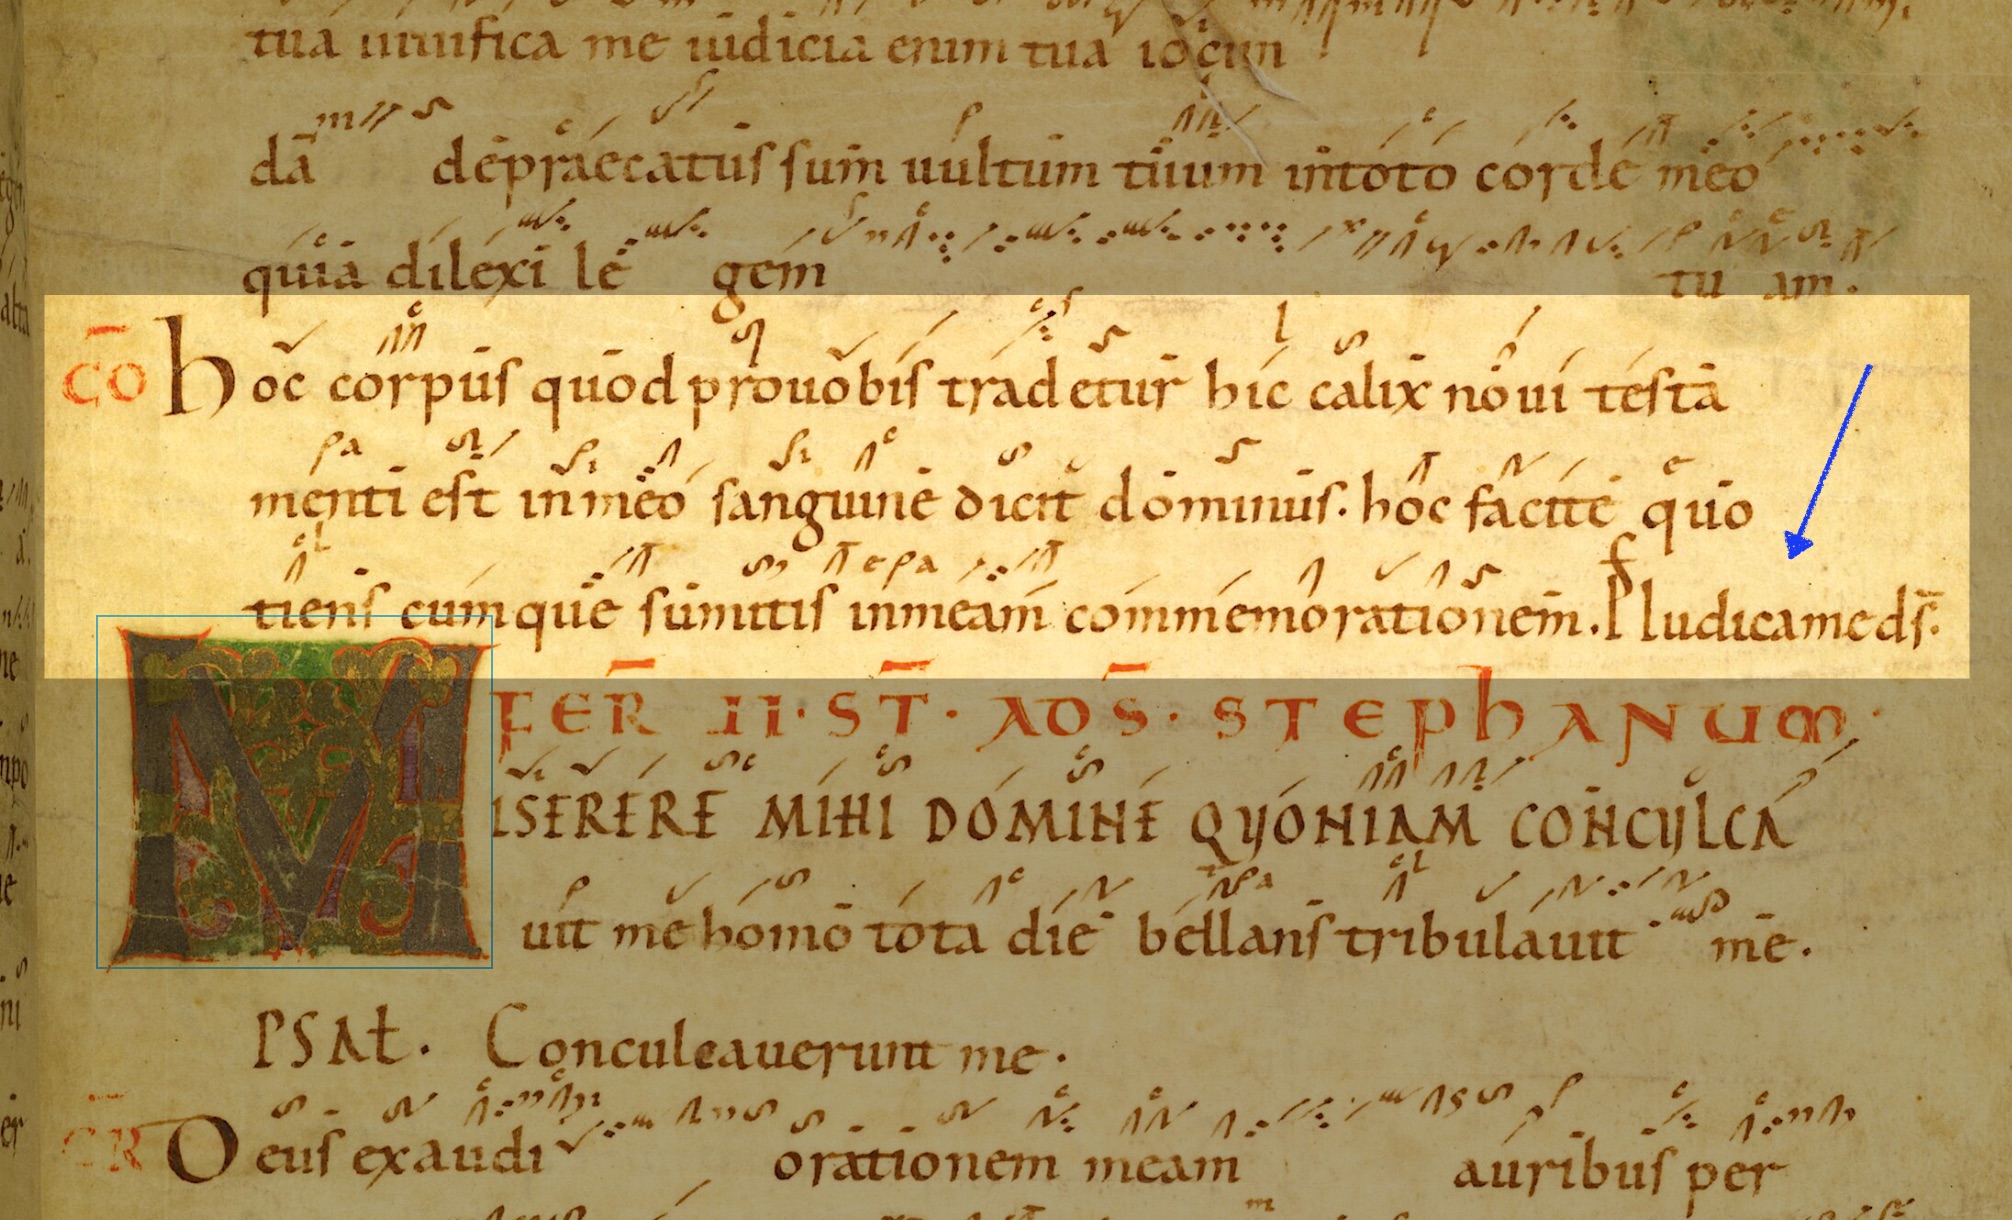 tua uiuifica me iudicia enim tua iocun
dā depraecatus sum uultum tuum intoto corde meo
quia dilexi le gem tu am.
CO hoc corpus quod prouobis tradetur hic calix noui testa
menti est inmeo sanguine dicit dominus. hoc facite quo
tiens cumque sumitis inmeam commemorationem. Ps Iudica me ds.
FER II. ST. AD S. STEPHANUM.
MISERERE MIHI DOMINE QUONIAM CONCULCA
uit me homo tota die bellans tribulauit me.
PSAL. Conculcauerunt me.
GR Deus exaudi orationem meam auribus per